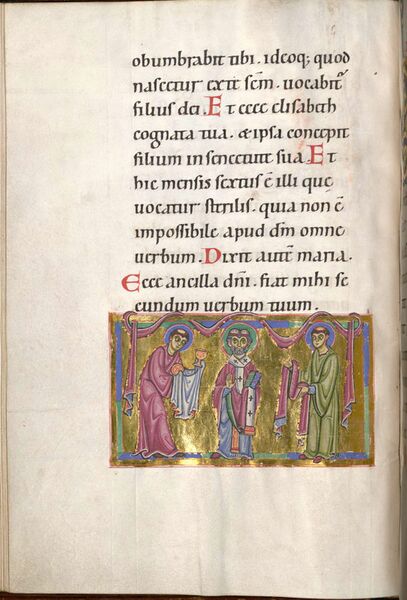 obumbrabit tibi. ideoq; quod
nascetur ex te scm̄. uocabit᷑
filius dei Et ecce elisabeth
cognata tua. & ipsa concepit
filium in senectute sua Et
hic mensis sextus ē illi que
uocatur sterilis. quia non ē
impossibile apud dm̄ omne
uerbum. Dixit autē maria.
Ecce ancilla dn̄i. fiat mihi se
cundum uerbum tuum.